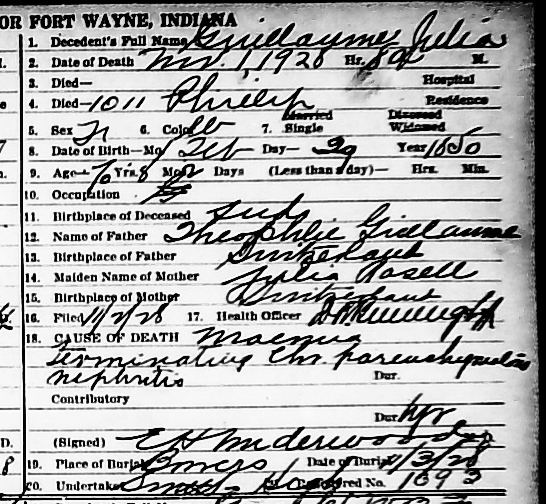 OR FORT WAYNE, INDIANA
1. Decedent's Full Name Guillaume Julia
2. Date of Death Nov. 1, 1928 Hr. M.
3. Died— Hospital
4. Died— 1011 Phillip Residence
5. Sex F 6. Color W 7. Married Single Divorced Widowed
8. Date of Birth—Mo. Feb Day— 29 Year 1850
9. Age— Yrs. 8 Mos. 2 Days (Less than a day)— Hrs. Min.
10. Occupation
11. Birthplace of Deceased Ind
12. Name of Father Theophile Guillaume
13. Birthplace of Father Switzerland
14. Maiden Name of Mother Julia Rosell
15. Birthplace of Mother Switzerland
16. Filed 11/2/28 17. Health Officer
18. CAUSE OF DEATH
terminating Chr parenchymatous
nephritis Dur.
Contributory
Dur.
D. (Signed) E H Underwood
8 19. Place of Burial Bowers Date of Burial 11/3/28
20. Undertaker Registered No. 1693